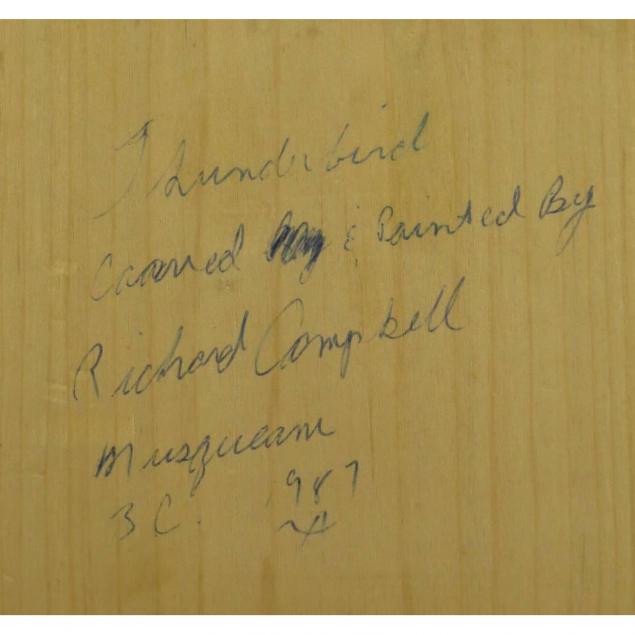 Thunderbird
Carved & Painted By
Richard Campbell
Musqueam
BC. 1987